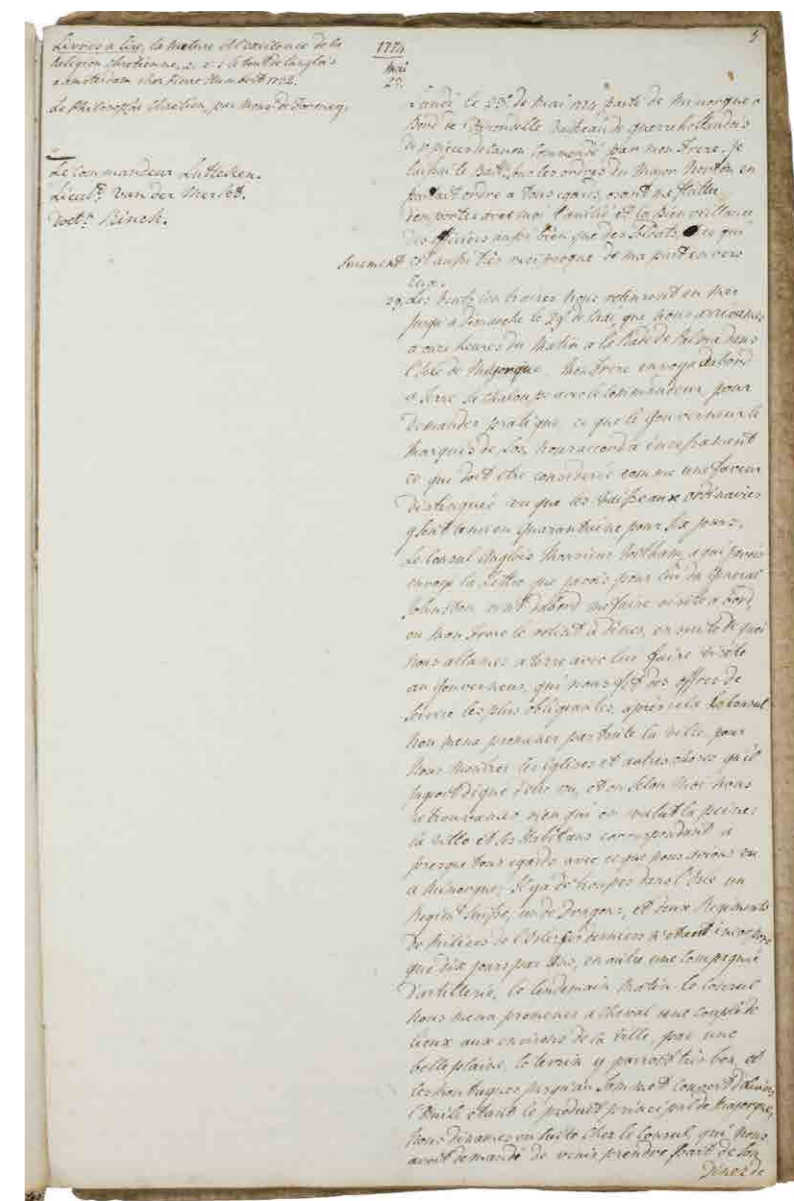 Livres a lire, la Nature et l'excellence de la
Religion chretienne,
a amsterdam chez Pierre Humbert 1732.
Le Philosophe Chretien, par Monsr. de Formey.
Le Commandeur Lutkeken.
Lieutt. van der Merkt.
Doctr. Rinck.
5
1774
Mai
23.
Lundi le 23e. de Mai 1774 partis de Minorque a
Bord de l'hirondelle Vaisseau de guerre hollandois
de pieces de Canon Commandé par mon Frere. Je
laissai le Batt: sous les ordres du Major Norton en
parfait ordre a tous egards, osant me flatter
d'emporter avec moi l'amitié et la Bienveillance
des officiers aussi bien que des soldats, ce qui
surement est aussi très reciproque de ma part envers
Eux.
29. Les Vents contraires nous retinrent en Mer
jusqu'a Dimanche le 29e. de Mai que nous arrivames
a onze heures du Matin a la Rade de Palma dans
l'Isle de Majorque. Mon Frere envoya dabord
a Terre sa chaloupe avec le Commandeur, pour
demander pratique, ce que le Gouverneur le
Marquis de nous accorda incessamment
ce que doit etre considerée comme une faveur
distinguée vu que les Vaisseaux ordinaires
y sont tenu en Quarantaine pour six jours.
Le Consul Anglois Monsieur a qui j'avois
envoyé la Lettre que j'avois pour lui du General
Johnston vint dabord me faire visite a bord,
ou mon Frere le retint a diner, ensuite de quoi
nous allames a terre avec lui faire visite
au Gouverneur, qui nous fit des offres de
service les plus obligeantes, après cela le Consul
nous mena promener par toute la ville, pour
nous montrer les Eglises et autres choses qu'il
digne d'etre vu, et ou selon moi nous
ne trouvames rien qui en valut la peine:
la ville et les Habitans correspondant a
presque tous egards avec ce que nous avions vu
a Minorque, Il y a de troupes dans l'Isle un
Regimt. Suisse, un de Dragons, et deux Regiments
de Milices de l'Isle, ces derniers n'etant
que dix jours par ans, en outre une Compagnie
d'artillerie, le lendemain Matin le Consul
nous mena promener a cheval une couple de
lieux aux environs de la Ville, par une
belle plaine, le terrain y paroit très bon, et
les Montagnes jusqu'au sommet couvert d'oliviers,
l'Huile etant le produit principal de Majorque,
nous dinames ensuite chez le Consul, qui nous
avoit demandé de venir prendre part de son
Diner de